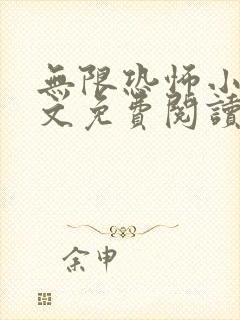 無限恐怖小
文免費閱讀
余申